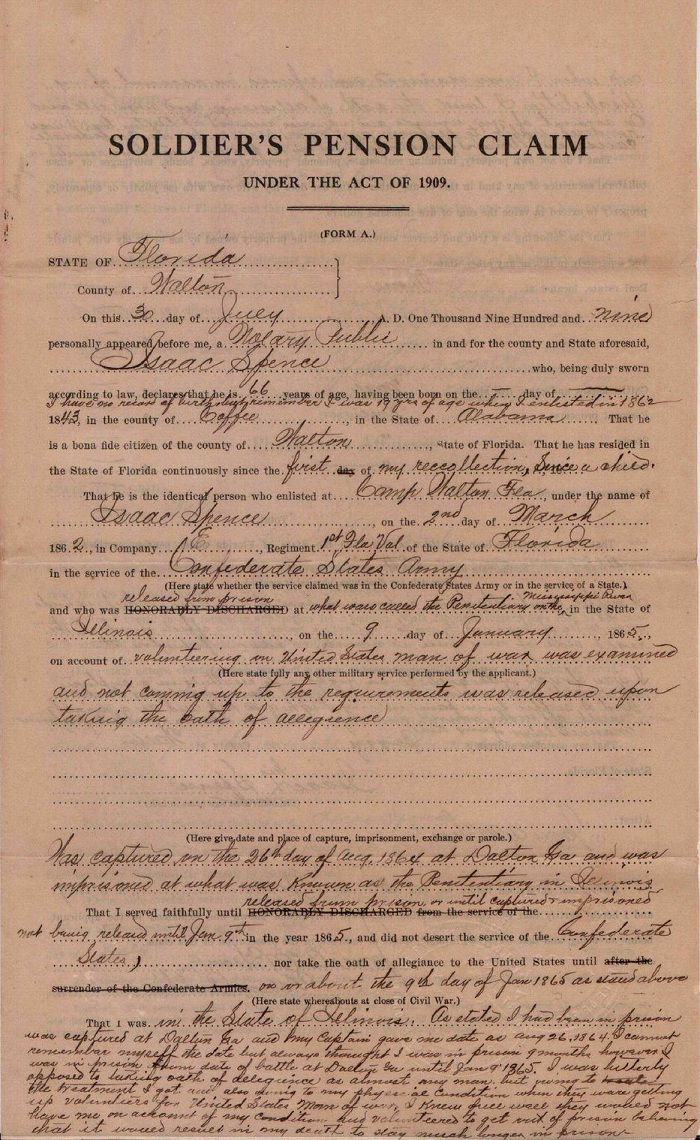 SOLDIER'S PENSION CLAIM
UNDER THE ACT OF 1909.
(FORM A.)
STATE OF Florida
County of Walton
On this 30 day of July A. D. One Thousand Nine Hundred and nine
personally appeared before me, a Notary Public in and for the county and State aforesaid,
Isaac Spence who, being duly sworn
according to law, declares that he is 66 years of age, having been born on the day of
I have no record of birth only remember I was 19 yrs of age when I enlisted in 1862
1843, in the county of Coffee, in the State of Alabama That he
is a bona fide citizen of the county of Walton, State of Florida. That he has resided in
the State of Florida continuously since the first day of my reccollection, Since a child.
That he is the identical person who enlisted at Camp Walton Fla, under the name of
Isaac Spence, on the 2nd day of March
1862, in Company E, Regiment 1st Fla Vol of the State of Florida
in the service of the Confederate States Army
(Here state whether the service claimed was in the Confederate States Army or in the service of a State.)
released from prison Mississippi River
and who was HONORABLY DISCHARGED at what was called the Penetentiary on the, in the State of
Illinois, on the 9 day of January, 1865,
on account of volunteering on United States man of war was examined
(Here state fully any other military service performed by the applicant.)
and not coming up to the requirements was released upon
taking the oath of allegience
(Here give date and place of capture, imprisonment, exchange or parole.)
Was captured on the 26th day of Aug 1864 at Dalton Ga and was
imprisoned at what was known as the Penetentiary in Illinois
released from prison, or until captured & imprisoned
That I served faithfully until HONORABLY DISCHARGED from the service of the
not being released until Jan 9th in the year 1865, and did not desert the service of the Confederate
States, nor take the oath of allegiance to the United States until after the
surrender of the Confederate Armies, on or about the 9th day of Jan 1865 as stated above
(Here state whereabouts at close of Civil War.)
That I was in the State of Illinois. As stated I had been in prison
was captured at Dalton Ga and my Captain gave me date as aug 26, 1864. I cannot
remember myself the date but always thought I was in prison 9 months however I
was in prison from date of battle at Dalton Ga until Jan 9" 1865. I was bitterly
opposed to taking oath of alegience as almost any man, but owing to
the treatment I got and also owing to my physical condition when they were getting
up volunteers for United States Man of war, I knew full well they would not
have me on account of my condition and volunteered to get out of prison believing
that it would result in my death to stay much longer in prison